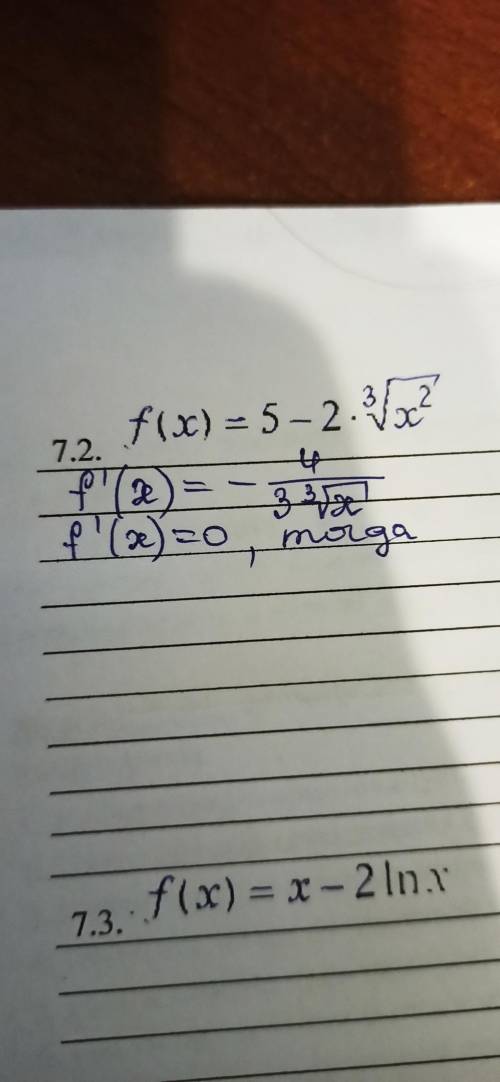 7.2. f(x) = 5 − 2 · ∛x²
f'(x) = − 4/(3∛x)
f'(x) = 0, тогда
7.3. f(x) = x − 2 ln x